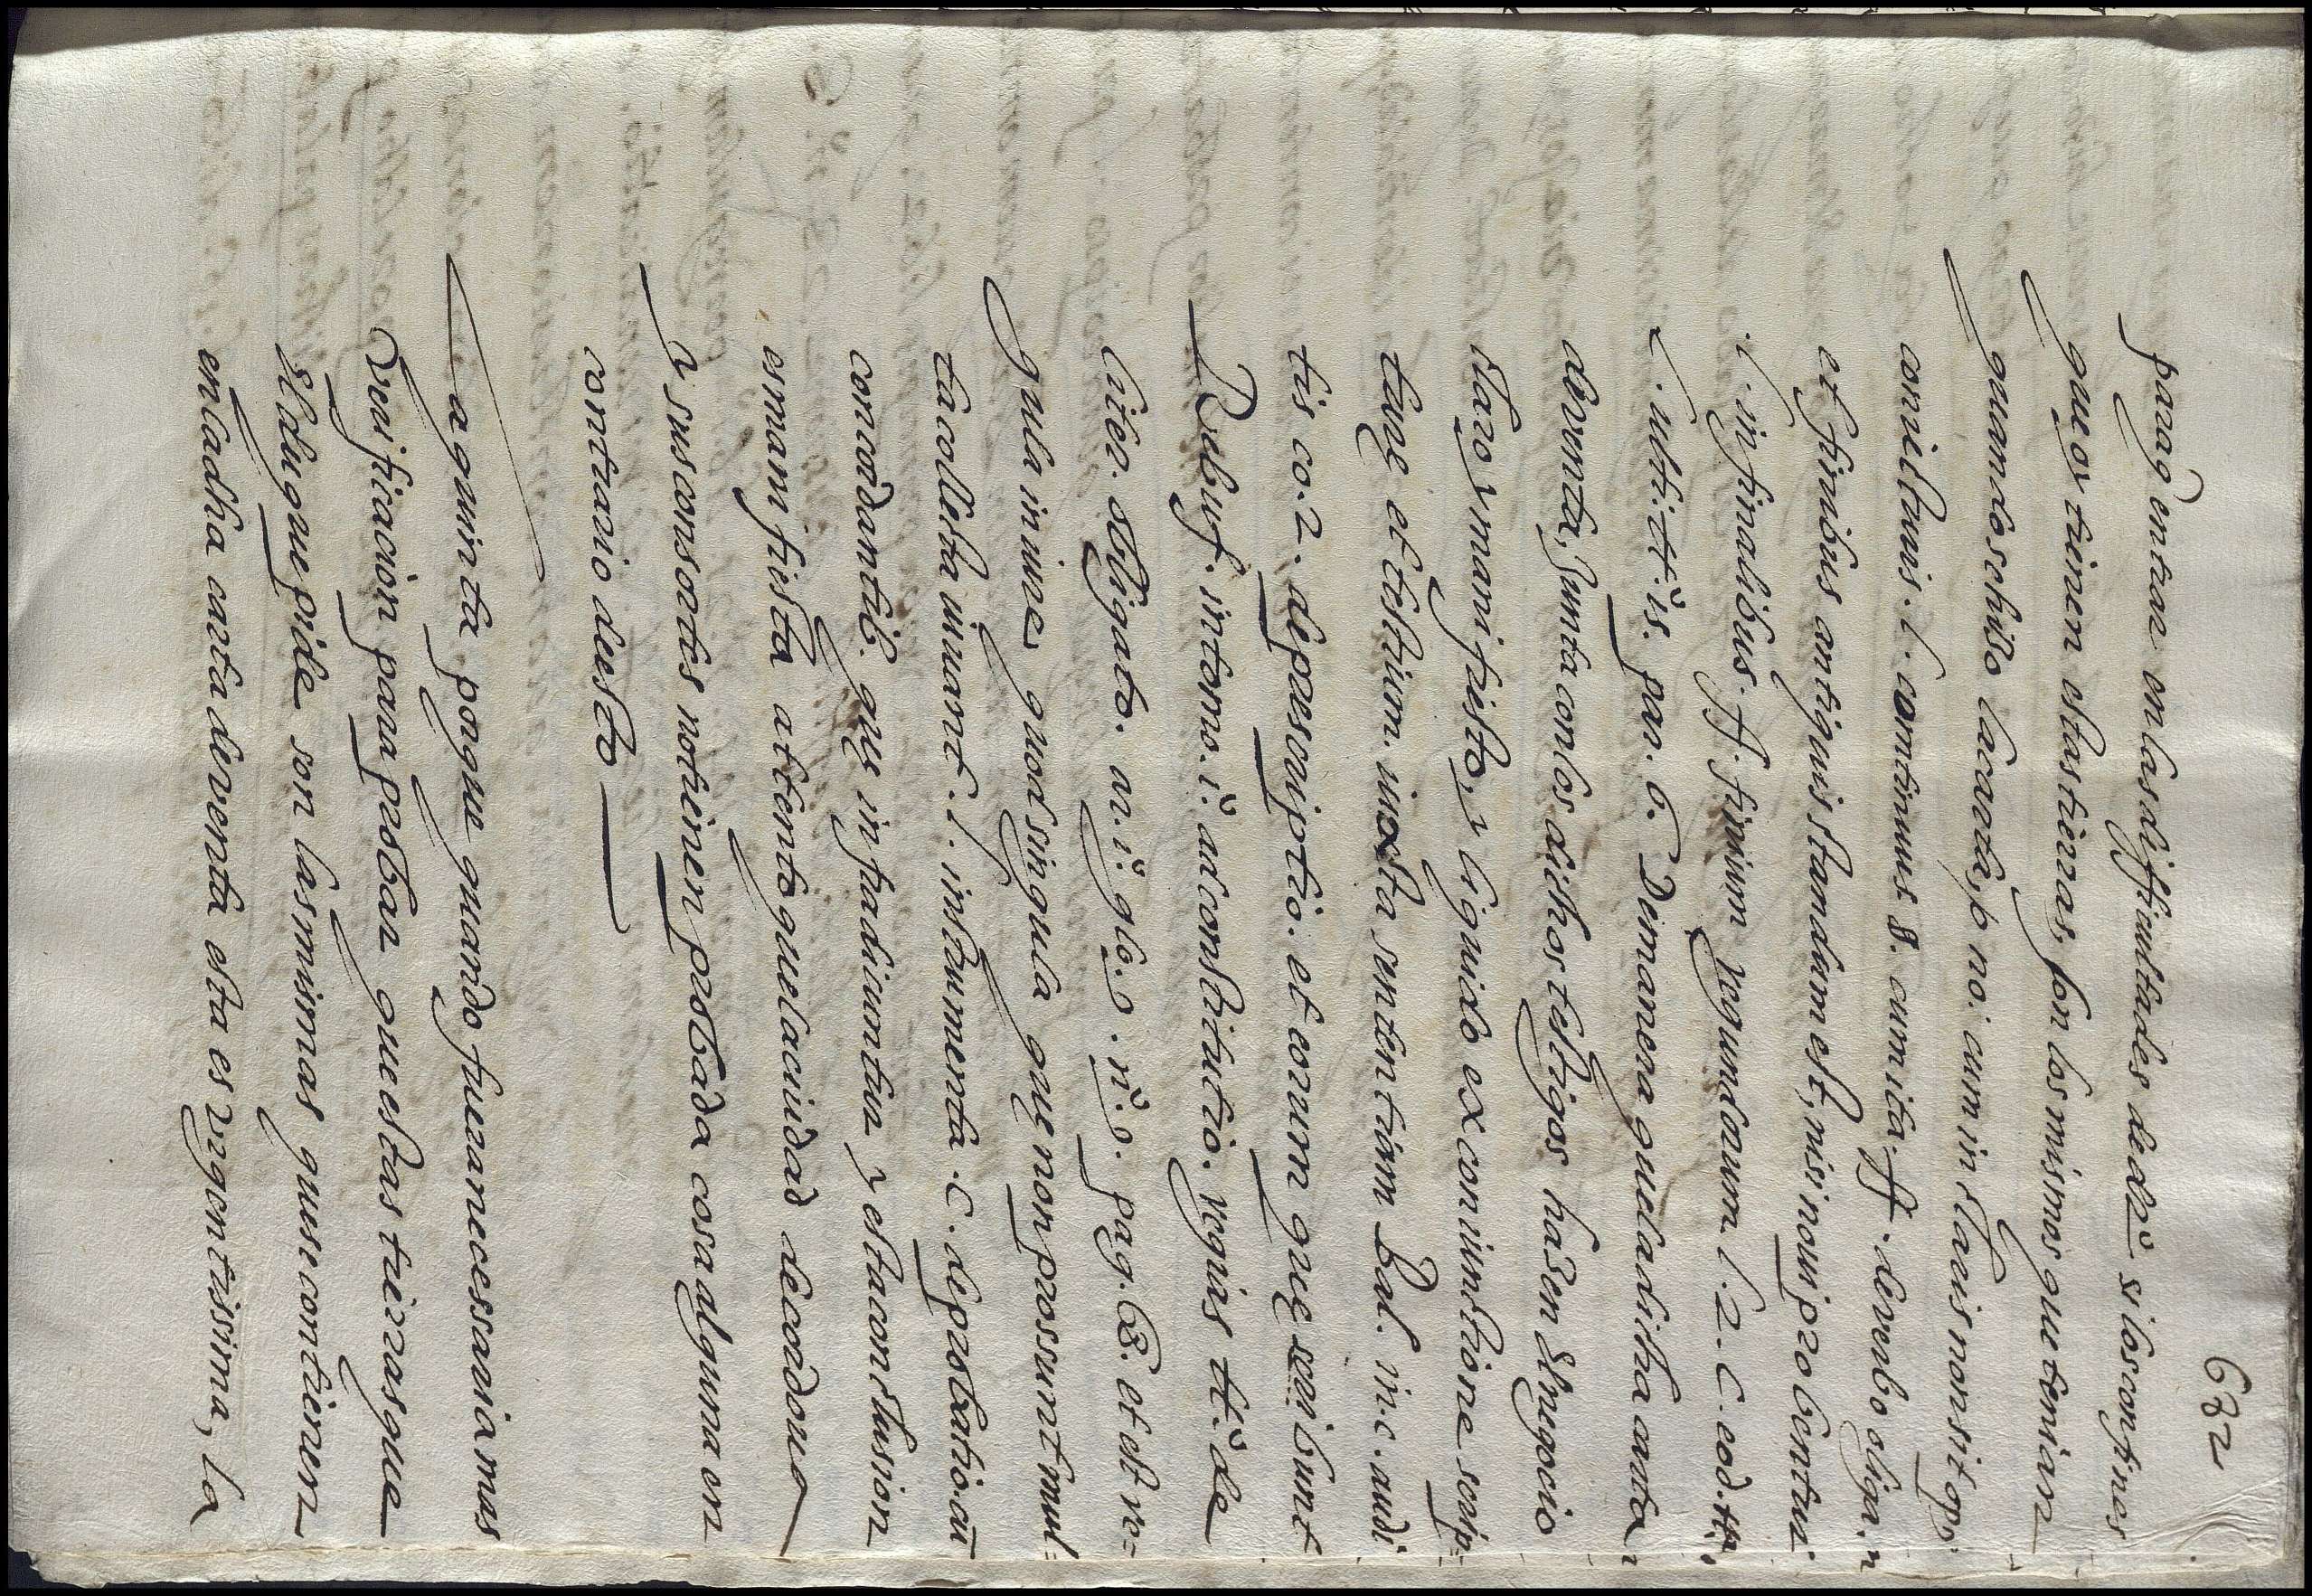 632
para q̄ entrar en las dificultades de dr̄o si los confines
que oy tienen estas tierras, son los mismos que tenian
quando se hizo la carta, o no. cum in claris non sit op,
coniecturis. l. continuus §. cum ita. ff. de verbo oblig. n
et finibus antiquis standum est, nisi noui probentur
l. in finalibus. ff. finium regundorum l. 2. C. eod. tt.
l. ulti. tt.is. par. 6. De manera que la dicha carta
de venta, junta con los dichos testigos hazen el negocio
claro y manifiesto, y liquido ex coniunctione scrip=
turę et testium. iuxta sententiam Bal. in. c. audi
tis co. 2. de prescriptio. et eorum quę scribunt
Rebuf. in tomo. i. ad constitutio. regias tt. de
liter. obligato. ar. i. glo. 9. n. 9. pag. 63. et est re=
gula in iure quod singula quę non possunt mul=
ta collecta iuuant. l. instrumenta. C. de probatio. cū
concordantib. quę in fradicuntur y esta conclusion
es manifiesta atento que la ciudad de cordoua
y sus consortes no tienen probada cosa alguna en
contrario de esto
La quinta porque quando fuera necessaria mas
Verificacion para probar que estas tierras que
el duque pide son las mismas que se contienen
en la dicha carta de venta esta es urgentissima, la